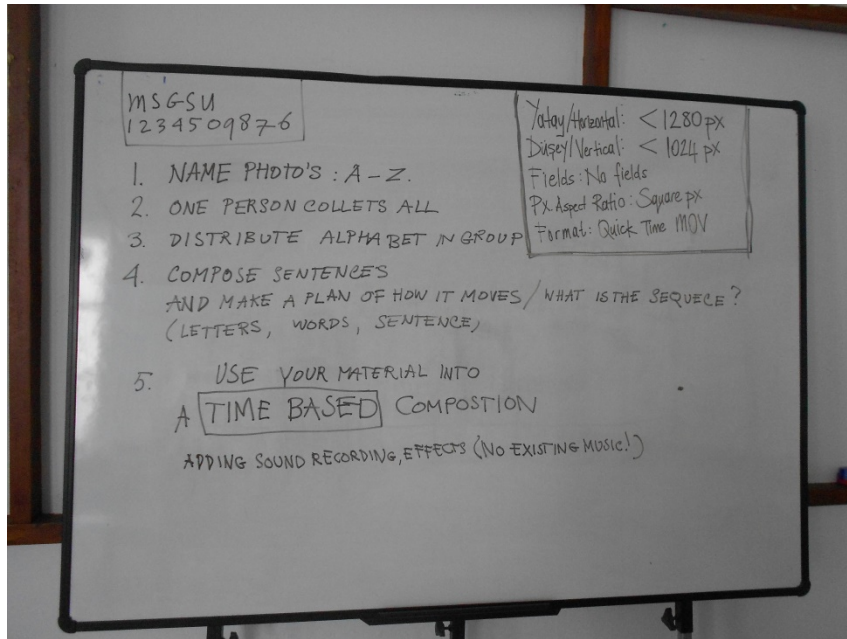 MSGSU
1234509876
Yatay/Horizontal: < 1280 px
Düşey/Vertical: < 1024 px
Fields: No fields
Px Aspect Ratio: Square px
Format: Quick Time MOV
1. NAME PHOTO'S: A-Z.
2. ONE PERSON COLLETS ALL
3. DISTRIBUTE ALPHABET IN GROUP
4. COMPOSE SENTENCES
AND MAKE A PLAN OF HOW IT MOVES/WHAT IS THE SEQUECE?
(LETTERS, WORDS, SENTENCE)
5. USE YOUR MATERIAL INTO
A TIME BASED COMPOSTION
ADDING SOUND RECORDING, EFFECTS (NO EXISTING MUSIC!)